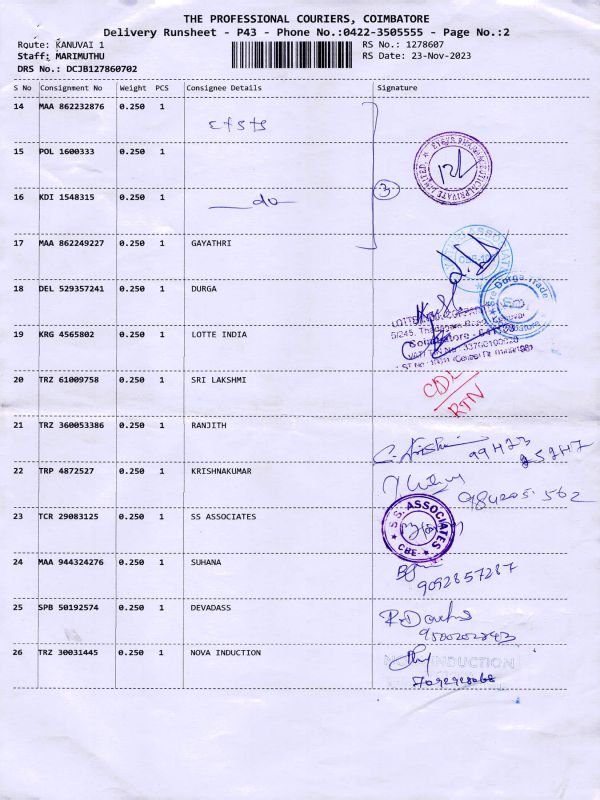 THE PROFESSIONAL COURIERS, COIMBATORE
Delivery Runsheet - P43 - Phone No.:0422-3505555 - Page No.:2
Route: KANUVAI 1 RS No.: 1278607
Staff: MARIMUTHU RS Date: 23-Nov-2023
DRS No.: DCJB127860702
S No Consignment No Weight PCS Consignee Details Signature
14 MAA 862232876 0.250 1
15 POL 1600333 0.250 1
3
16 KDI 1548315 0.250 1 do
17 MAA 862249227 0.250 1 GAYATHRI
18 DEL 529357241 0.250 1 DURGA
19 KRG 4565802 0.250 1 LOTTE INDIA
Coimbatore
20 TRZ 61009758 0.250 1 SRI LAKSHMI
RTN
21 TRZ 360053386 0.250 1 RANJITH
22 TRP 4872527 0.250 1 KRISHNAKUMAR
23 TCR 29083125 0.250 1 SS ASSOCIATES
S.S. ASSOCIATES
CBE
24 MAA 944324276 0.250 1 SUHANA
9092857287
25 SPB 50192574 0.250 1 DEVADASS
26 TRZ 30031445 0.250 1 NOVA INDUCTION
NOVA INDUCTION